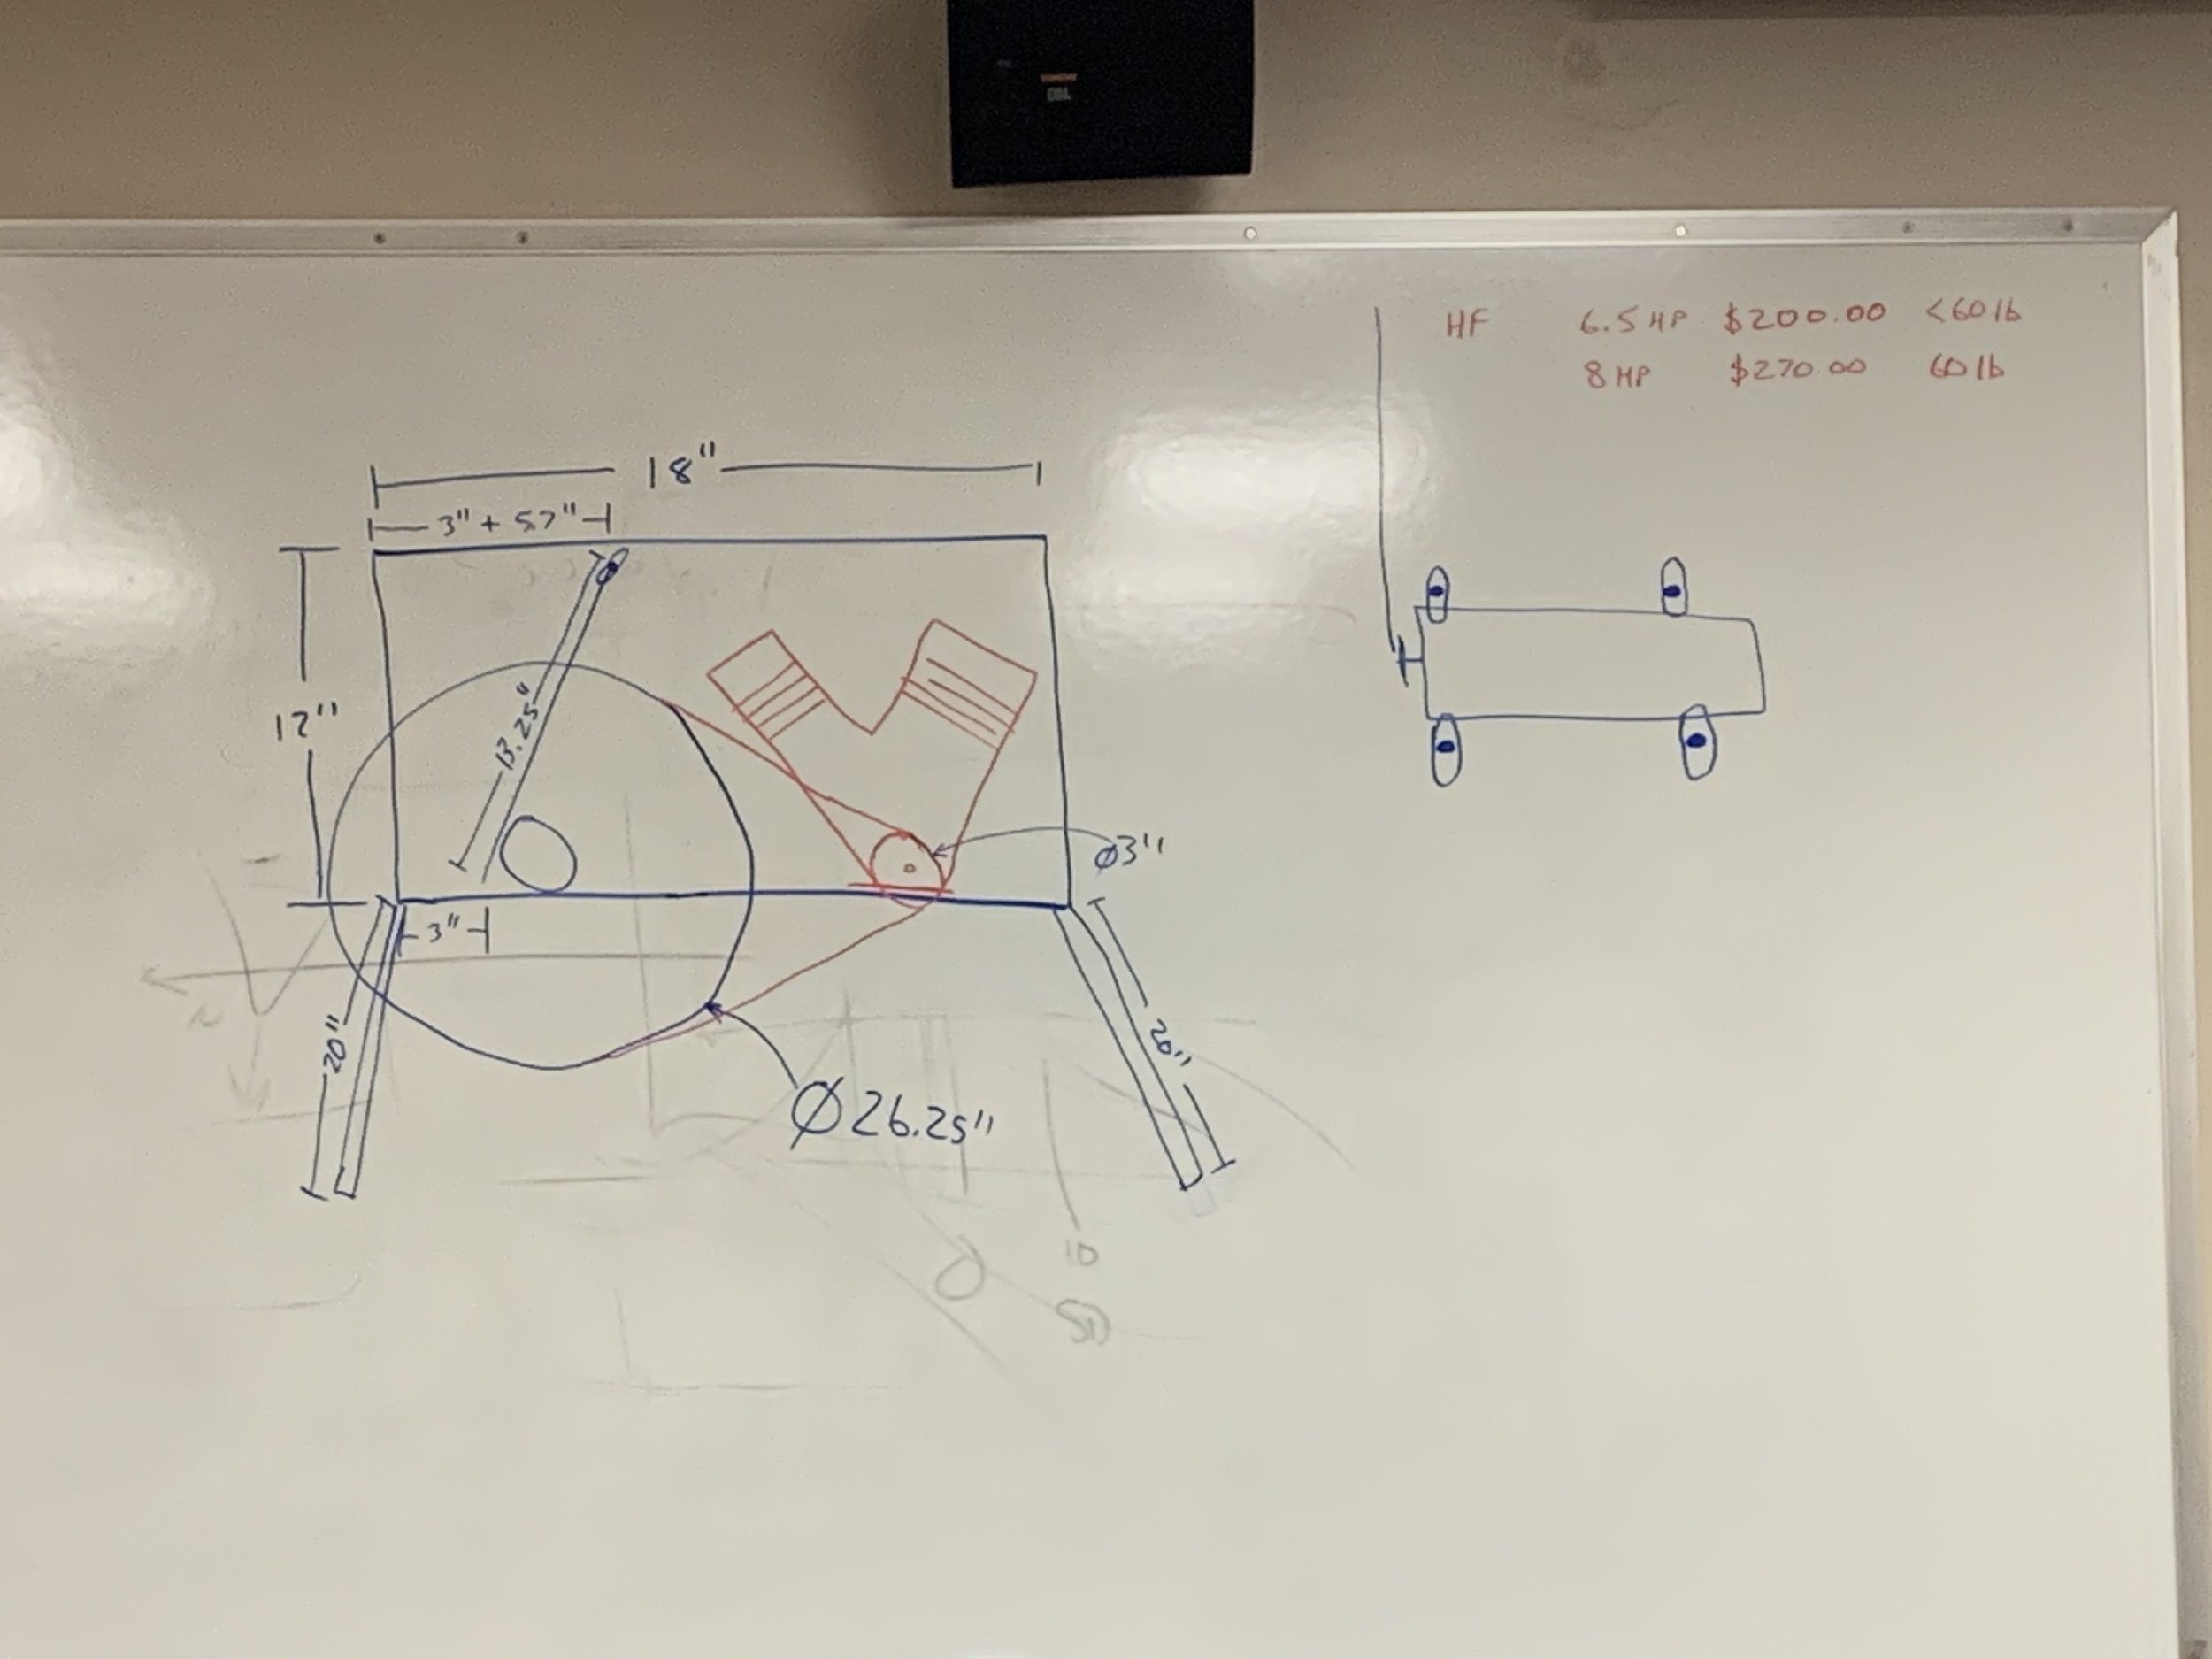 JBL
HF 6.5 HP $200.00 <60 lb
8 HP $270.00 60 lb
18"
3" + 5.7"
12"
13.25"
Ø3"
3"
20"
20"
Ø26.25"
10